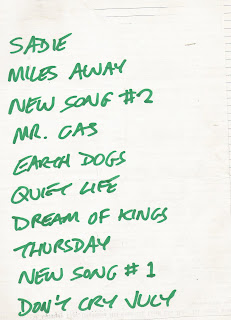 SADIE
MILES AWAY
NEW SONG #2
MR. GAS
EARTH DOGS
QUIET LIFE
DREAM OF KINGS
THURSDAY
NEW SONG #1
DON'T CRY JULY